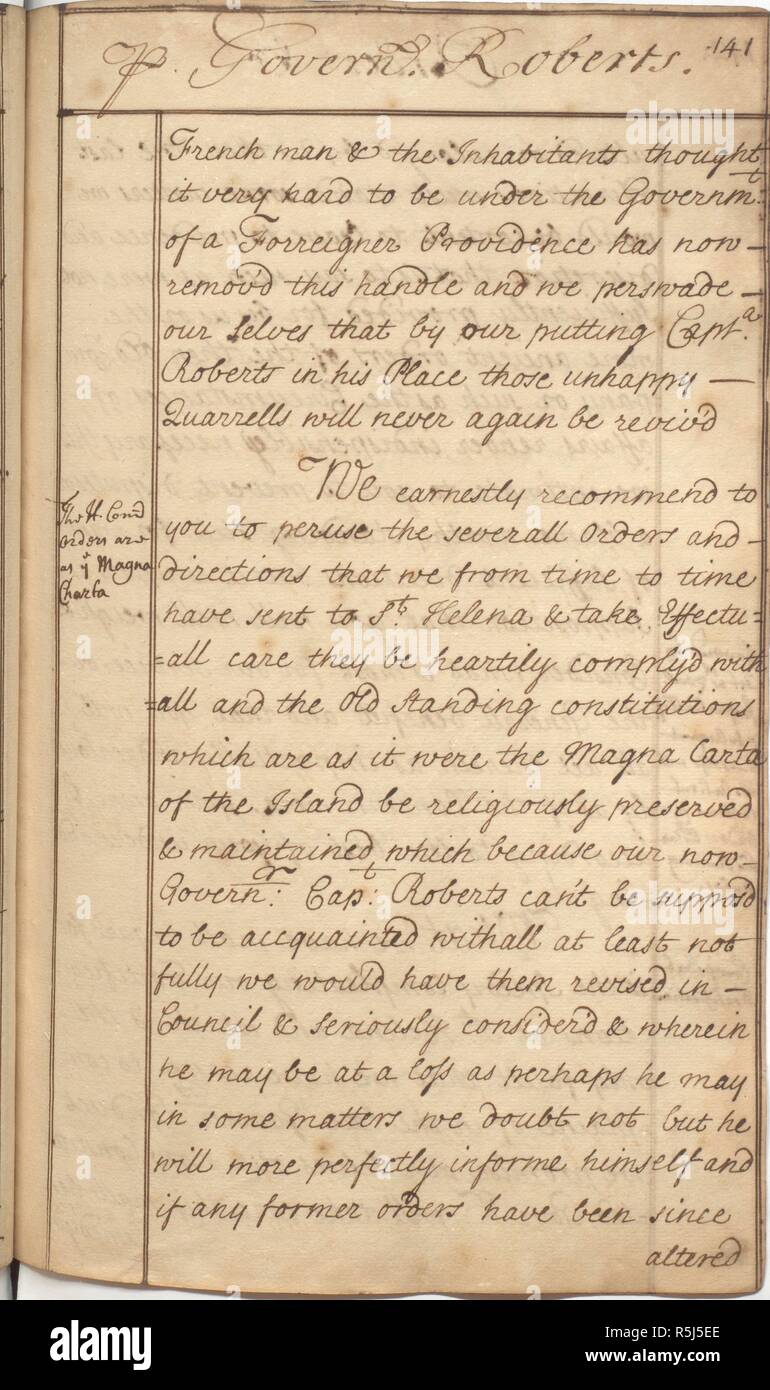 p. Governr. Roberts.
141
French man & the Inhabitants thought
it very hard to be under the Governmt.
of a Forreigner Providence has now —
remov'd this handle and we perswade —
our selves that by our putting Capt.
Roberts in his Place those unhappy —
Quarrells will never again be reviv'd
We earnestly recommend to
you to peruse the severall Orders and —
directions that we from time to time
have sent to St. Helena & take Effectu=
=all care they be heartily comply'd with
=all and the Old standing constitutions
which are as it were the Magna Carta
of the Island be religiously preserved
& maintained which because our now —
Governr. Capt: Roberts can't be suppos'd
to be accquainted withall at least not
fully we would have them revised in —
Council & seriously consider'd & wherein
he may be at a loss as perhaps he may
in some matters we doubt not but he
will more perfectly informe himself and
if any former orders have been since
altered
The H. Comd
Orders are
as ye Magna
Charta
alamy
alamy stock photo
R5J5EE
www.alamy.com